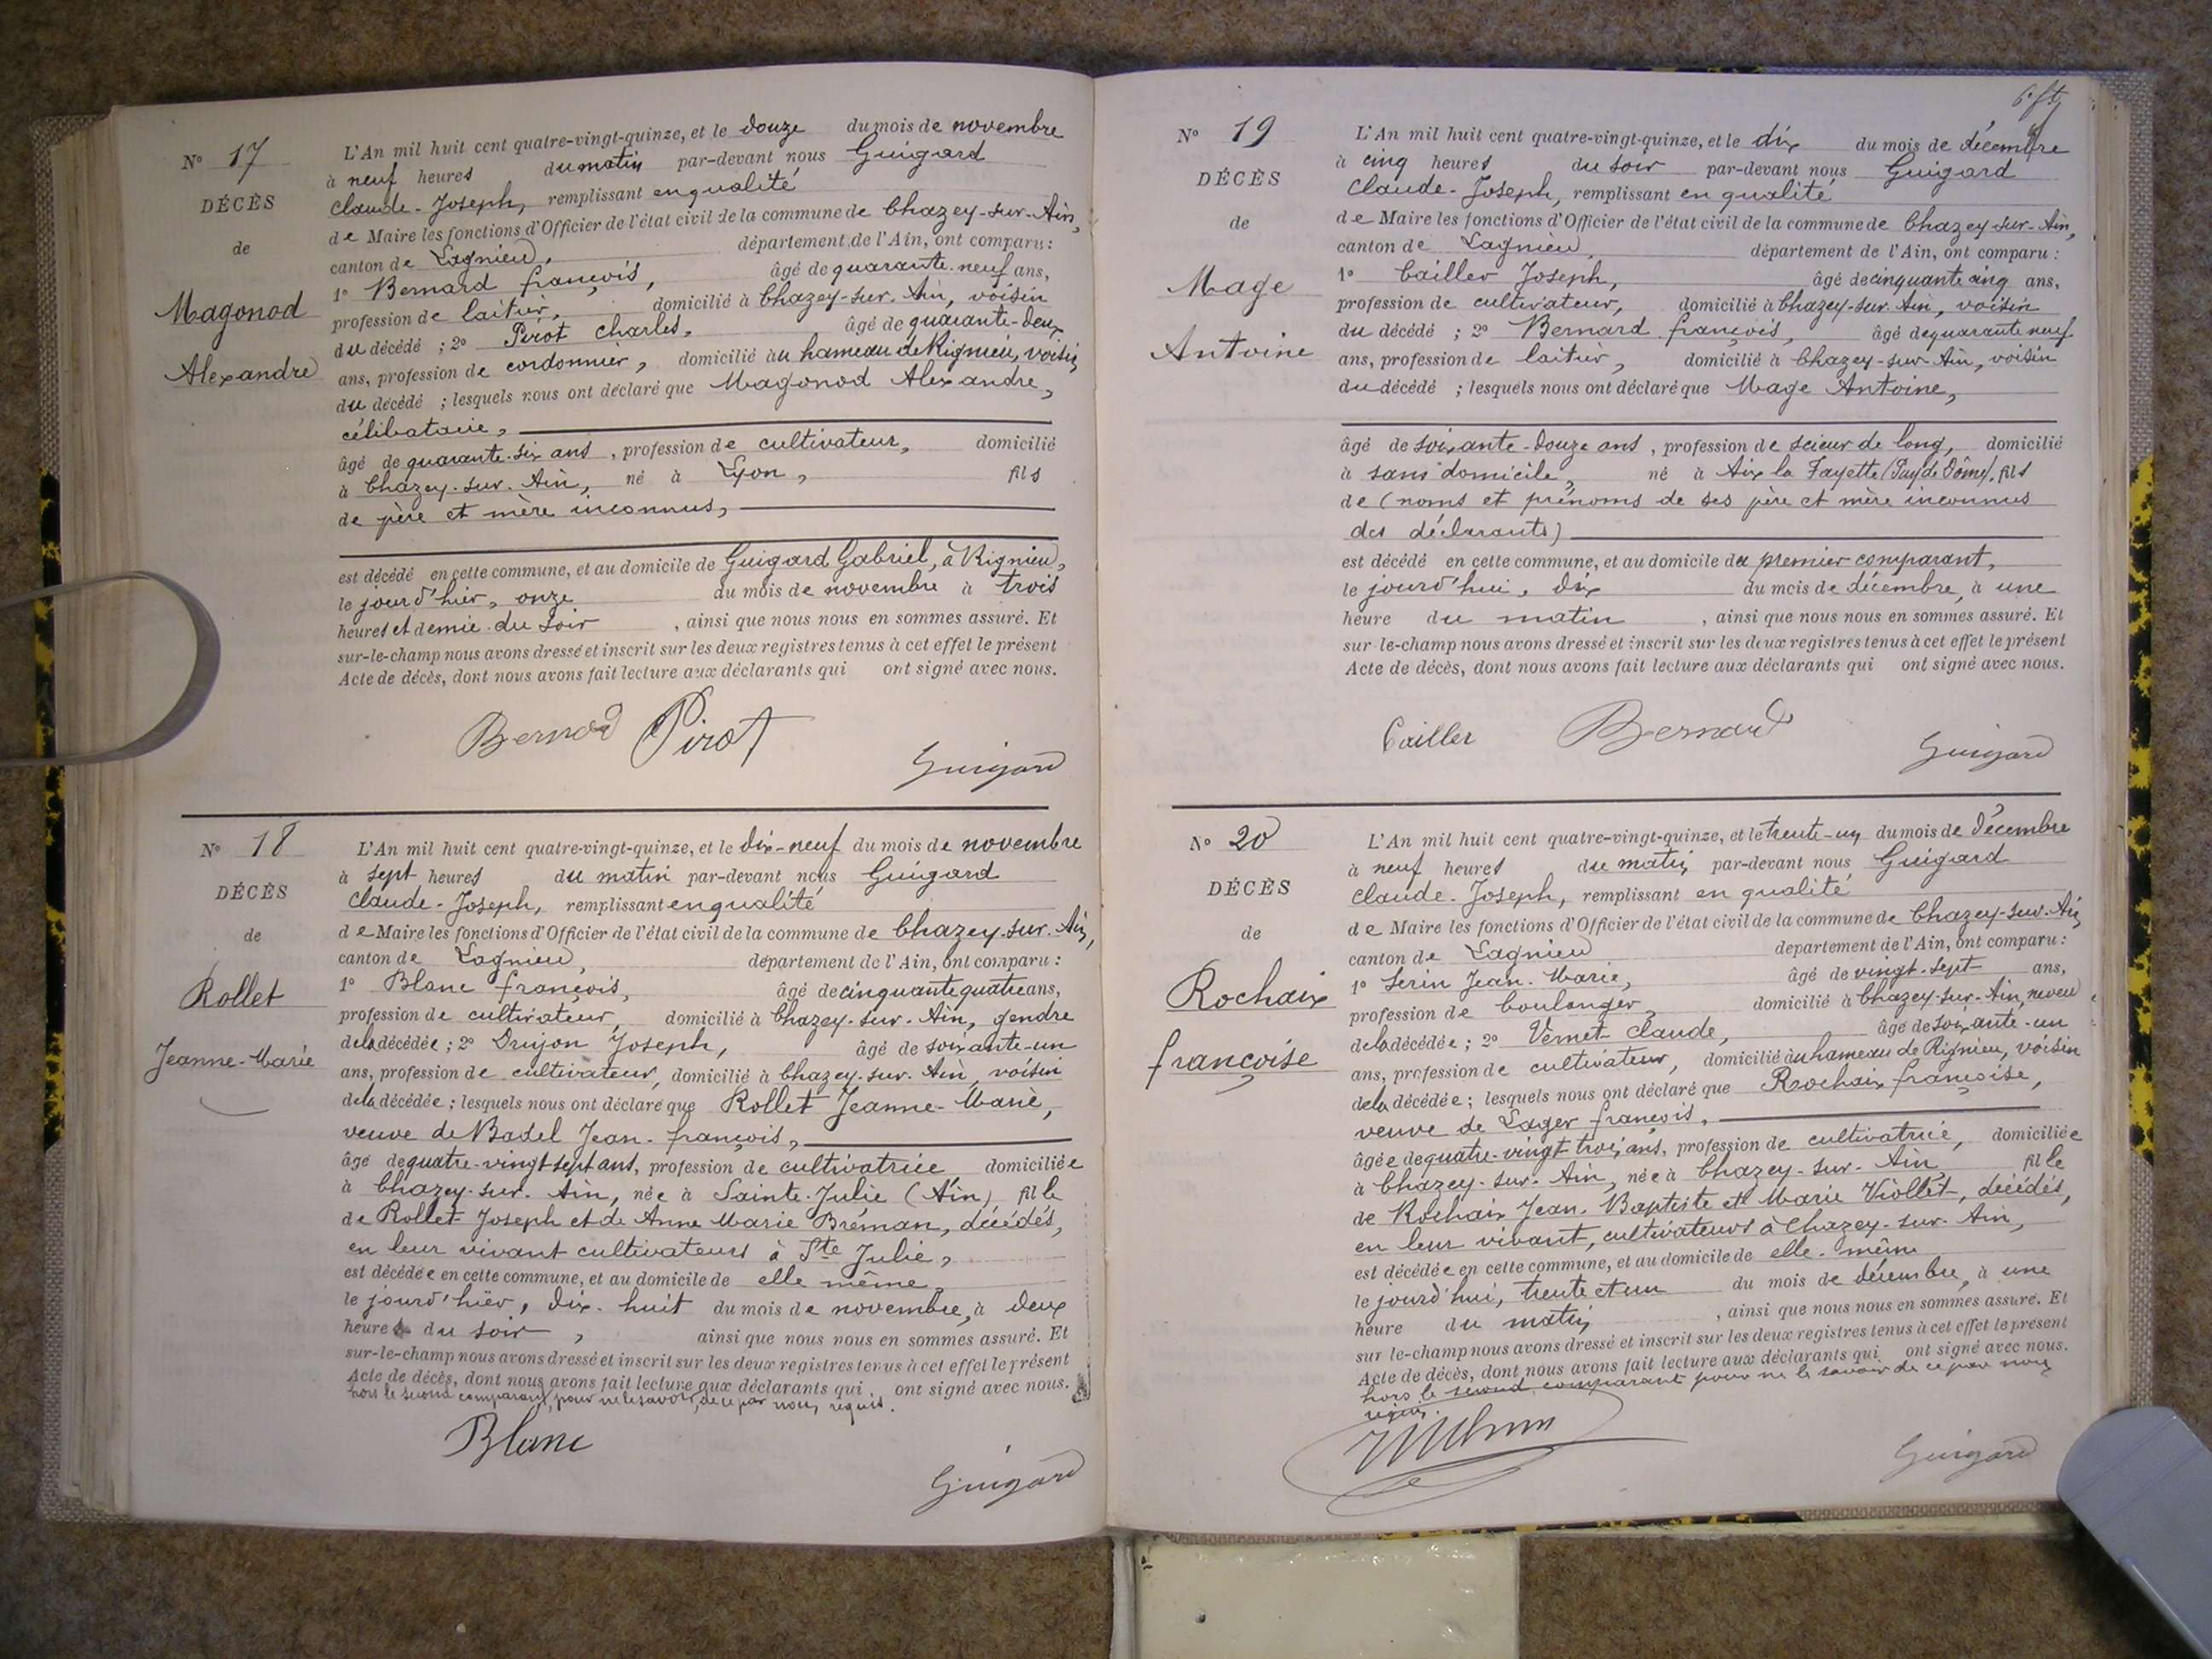 N° 17
DÉCÈS
de
Magonod
Alexandre
L'An mil huit cent quatre-vingt-quinze, et le douze du mois de novembre
à neuf heures du matin par-devant nous Guigard
Claude-Joseph, remplissant en qualité
de Maire les fonctions d'Officier de l'état civil de la commune de Chazey-sur-Ain,
canton de Lagnieu, département de l'Ain, ont comparu :
1° Bernard françois, âgé de quarante-neuf ans,
profession de laitier, domicilié à Chazey-sur-Ain, voisin
du décédé ; 2° Pirot Charles, âgé de quarante-deux
ans, profession de cordonnier, domicilié au hameau de Rignieu, voisin
du décédé ; lesquels nous ont déclaré que Magonod Alexandre,
célibataire,
âgé de quarante-six ans, profession de cultivateur, domicilié
à Chazey-sur-Ain, né à Lyon, fils
de père et mère inconnus,
est décédé en cette commune, et au domicile de Guigard Gabriel, à Rignieu,
le jourd'hier, onze du mois de novembre à trois
heures et demie du soir, ainsi que nous nous en sommes assuré. Et
sur-le-champ nous avons dressé et inscrit sur les deux registres tenus à cet effet le présent
Acte de décès, dont nous avons fait lecture aux déclarants qui ont signé avec nous.
Bernard Pirot
Guigard
N° 18
DÉCÈS
de
Rollet
Jeanne-Marie
L'An mil huit cent quatre-vingt-quinze, et le dix-neuf du mois de novembre
à sept heures du matin par-devant nous Guigard
Claude-Joseph, remplissant en qualité
de Maire les fonctions d'Officier de l'état civil de la commune de Chazey-sur-Ain,
canton de Lagnieu, département de l'Ain, ont comparu :
1° Blanc françois, âgé de cinquante quatre ans,
profession de cultivateur, domicilié à Chazey-sur-Ain, gendre
de la décédée ; 2° Drujon Joseph, âgé de soixante-un
ans, profession de cultivateur, domicilié à Chazey-sur-Ain, voisin
de la décédée ; lesquels nous ont déclaré que Rollet Jeanne-Marie,
veuve de Badel Jean-françois,
âgé de quatre-vingt-sept ans, profession de cultivatrice domiciliée
à Chazey-sur-Ain, née à Sainte-Julie (Ain) fille
de Rollet Joseph et de Anne Marie Bréman, décédés,
en leur vivant cultivateurs à Ste Julie,
est décédée en cette commune, et au domicile de elle même,
le jourd'hier, dix-huit du mois de novembre, à deux
heures du soir, ainsi que nous nous en sommes assuré. Et
sur-le-champ nous avons dressé et inscrit sur les deux registres tenus à cet effet le présent
Acte de décès, dont nous avons fait lecture aux déclarants qui ont signé avec nous.
hors le second comparant, pour ne le savoir, de ce par nous requis.
Blanc
Guigard
N° 19
DÉCÈS
de
Mage
Antoine
L'An mil huit cent quatre-vingt-quinze, et le dix du mois de décembre
à cinq heures du soir par-devant nous Guigard
Claude-Joseph, remplissant en qualité
de Maire les fonctions d'Officier de l'état civil de la commune de Chazey-sur-Ain,
canton de Lagnieu, département de l'Ain, ont comparu :
1° Cailler Joseph, âgé de cinquante cinq ans,
profession de cultivateur, domicilié à Chazey-sur-Ain, voisin
du décédé ; 2° Bernard françois, âgé de quarante neuf
ans, profession de laitier, domicilié à Chazey-sur-Ain, voisin
du décédé ; lesquels nous ont déclaré que Mage Antoine,
âgé de soixante-douze ans, profession de scieur de long, domicilié
à sans domicile, né à Aix la Fayette (Puy de Dôme), fils
de (noms et prénoms de ses père et mère inconnus
des déclarants)
est décédé en cette commune, et au domicile du premier comparant,
le jourd'hui, dix du mois de décembre, à une
heure du matin, ainsi que nous nous en sommes assuré. Et
sur-le-champ nous avons dressé et inscrit sur les deux registres tenus à cet effet le présent
Acte de décès, dont nous avons fait lecture aux déclarants qui ont signé avec nous.
Cailler Bernard
Guigard
N° 20
DÉCÈS
de
Rochaix
françoise
L'An mil huit cent quatre-vingt-quinze, et le trente-un du mois de décembre
à neuf heures du matin par-devant nous Guigard
Claude-Joseph, remplissant en qualité
de Maire les fonctions d'Officier de l'état civil de la commune de Chazey-sur-Ain,
canton de Lagnieu département de l'Ain, ont comparu :
1° Serin Jean-Marie, âgé de vingt-sept ans,
profession de boulanger, domicilié à Chazey-sur-Ain, neveu
de la décédée ; 2° Vernet Claude, âgé de soixante-un
ans, profession de cultivateur, domicilié au hameau de Rignieu, voisin
de la décédée ; lesquels nous ont déclaré que Rochaix françoise,
veuve de Lager françois,
âgée de quatre-vingt trois ans, profession de cultivatrice, domiciliée
à Chazey-sur-Ain, née à Chazey-sur-Ain fille
de Rochaix Jean-Baptiste et Marie Viollet, décédés,
en leur vivant, cultivateurs à Chazey-sur-Ain,
est décédée en cette commune, et au domicile de elle-même
le jourd'hui, trente et un du mois de décembre, à une
heure du matin, ainsi que nous nous en sommes assuré. Et
sur le champ nous avons dressé et inscrit sur les deux registres tenus à cet effet le présent
Acte de décès, dont nous avons fait lecture aux déclarants qui ont signé avec nous.
hors le second comparant pour ne le savoir de ce par nous
requis.
Guigard